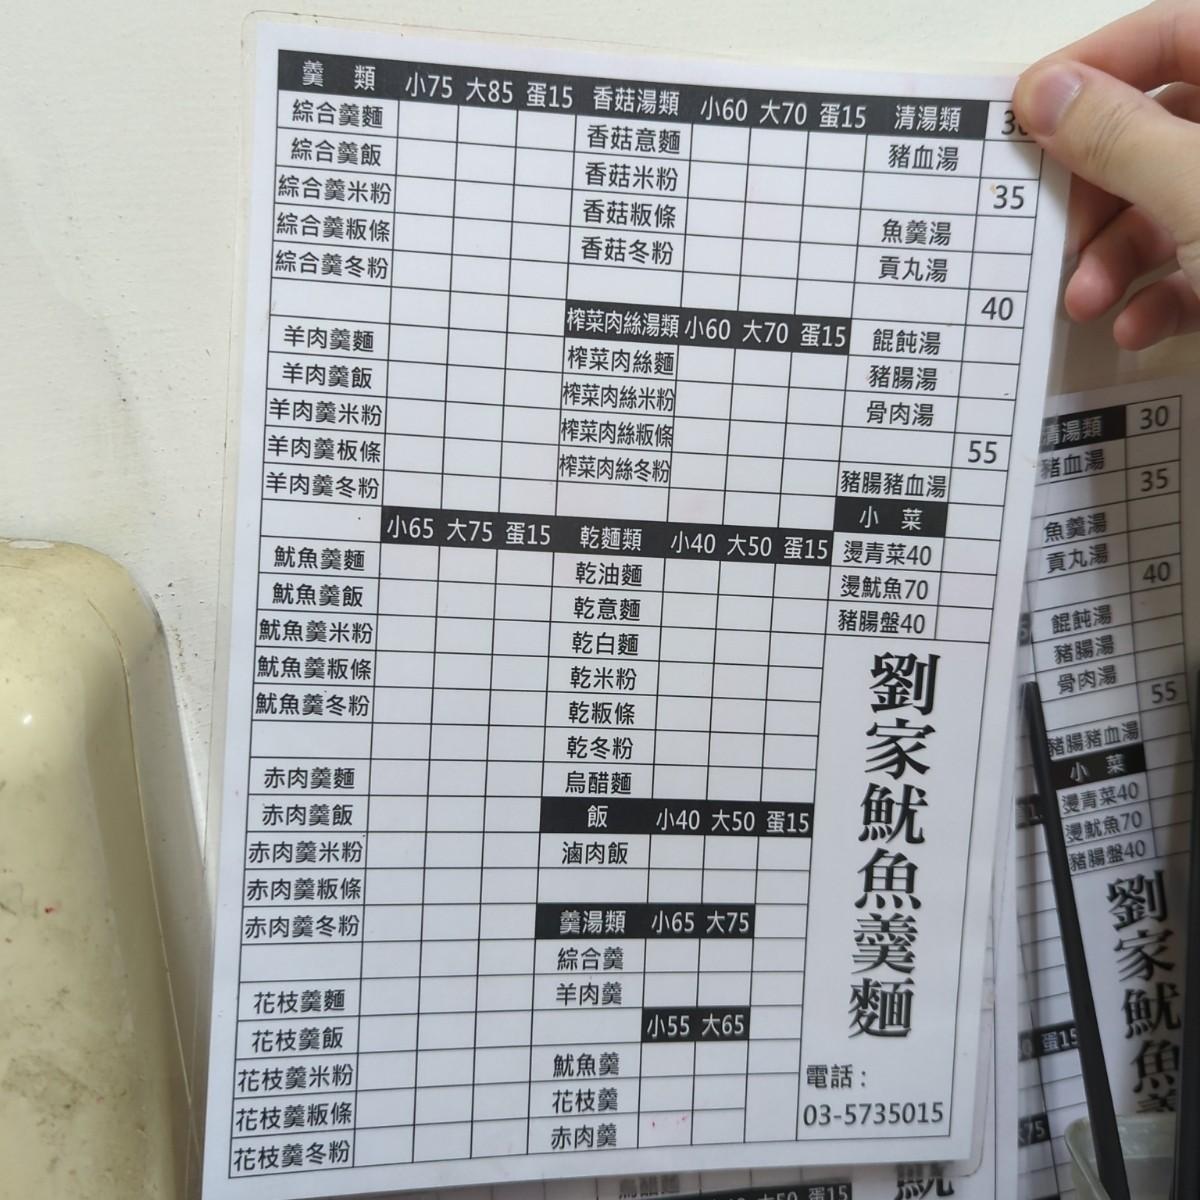 羹 類 小75 大85 蛋15
綜合羹麵
綜合羹飯
綜合羹米粉
綜合羹粄條
綜合羹冬粉
羊肉羹麵
羊肉羹飯
羊肉羹米粉
羊肉羹板條
羊肉羹冬粉
小65 大75 蛋15
魷魚羹麵
魷魚羹飯
魷魚羹米粉
魷魚羹粄條
魷魚羹冬粉
赤肉羹麵
赤肉羹飯
赤肉羹米粉
赤肉羹粄條
赤肉羹冬粉
花枝羹麵
花枝羹飯
花枝羹米粉
花枝羹粄條
花枝羹冬粉
香菇湯類 小60 大70 蛋15
香菇意麵
香菇米粉
香菇粄條
香菇冬粉
榨菜肉絲湯類 小60 大70 蛋15
榨菜肉絲麵
榨菜肉絲米粉
榨菜肉絲粄條
榨菜肉絲冬粉
乾麵類 小40 大50 蛋15
乾油麵
乾意麵
乾白麵
乾米粉
乾粄條
乾冬粉
烏醋麵
飯 小40 大50 蛋15
滷肉飯
羹湯類 小65 大75
綜合羹
羊肉羹
小55 大65
魷魚羹
花枝羹
赤肉羹
清湯類 30
豬血湯
35
魚羹湯
貢丸湯
40
餛飩湯
豬腸湯
骨肉湯
55
豬腸豬血湯
小 菜
燙青菜40
燙魷魚70
豬腸盤40
劉家魷魚羹麵
電話：
03-5735015
清湯類 30
豬血湯
35
魚羹湯
貢丸湯
40
餛飩湯
豬腸湯
骨肉湯
55
豬腸豬血湯
小 菜
燙青菜40
燙魷魚70
豬腸盤40
劉家魷魚羹
蛋15
烏醋麵
大50 蛋15
魷